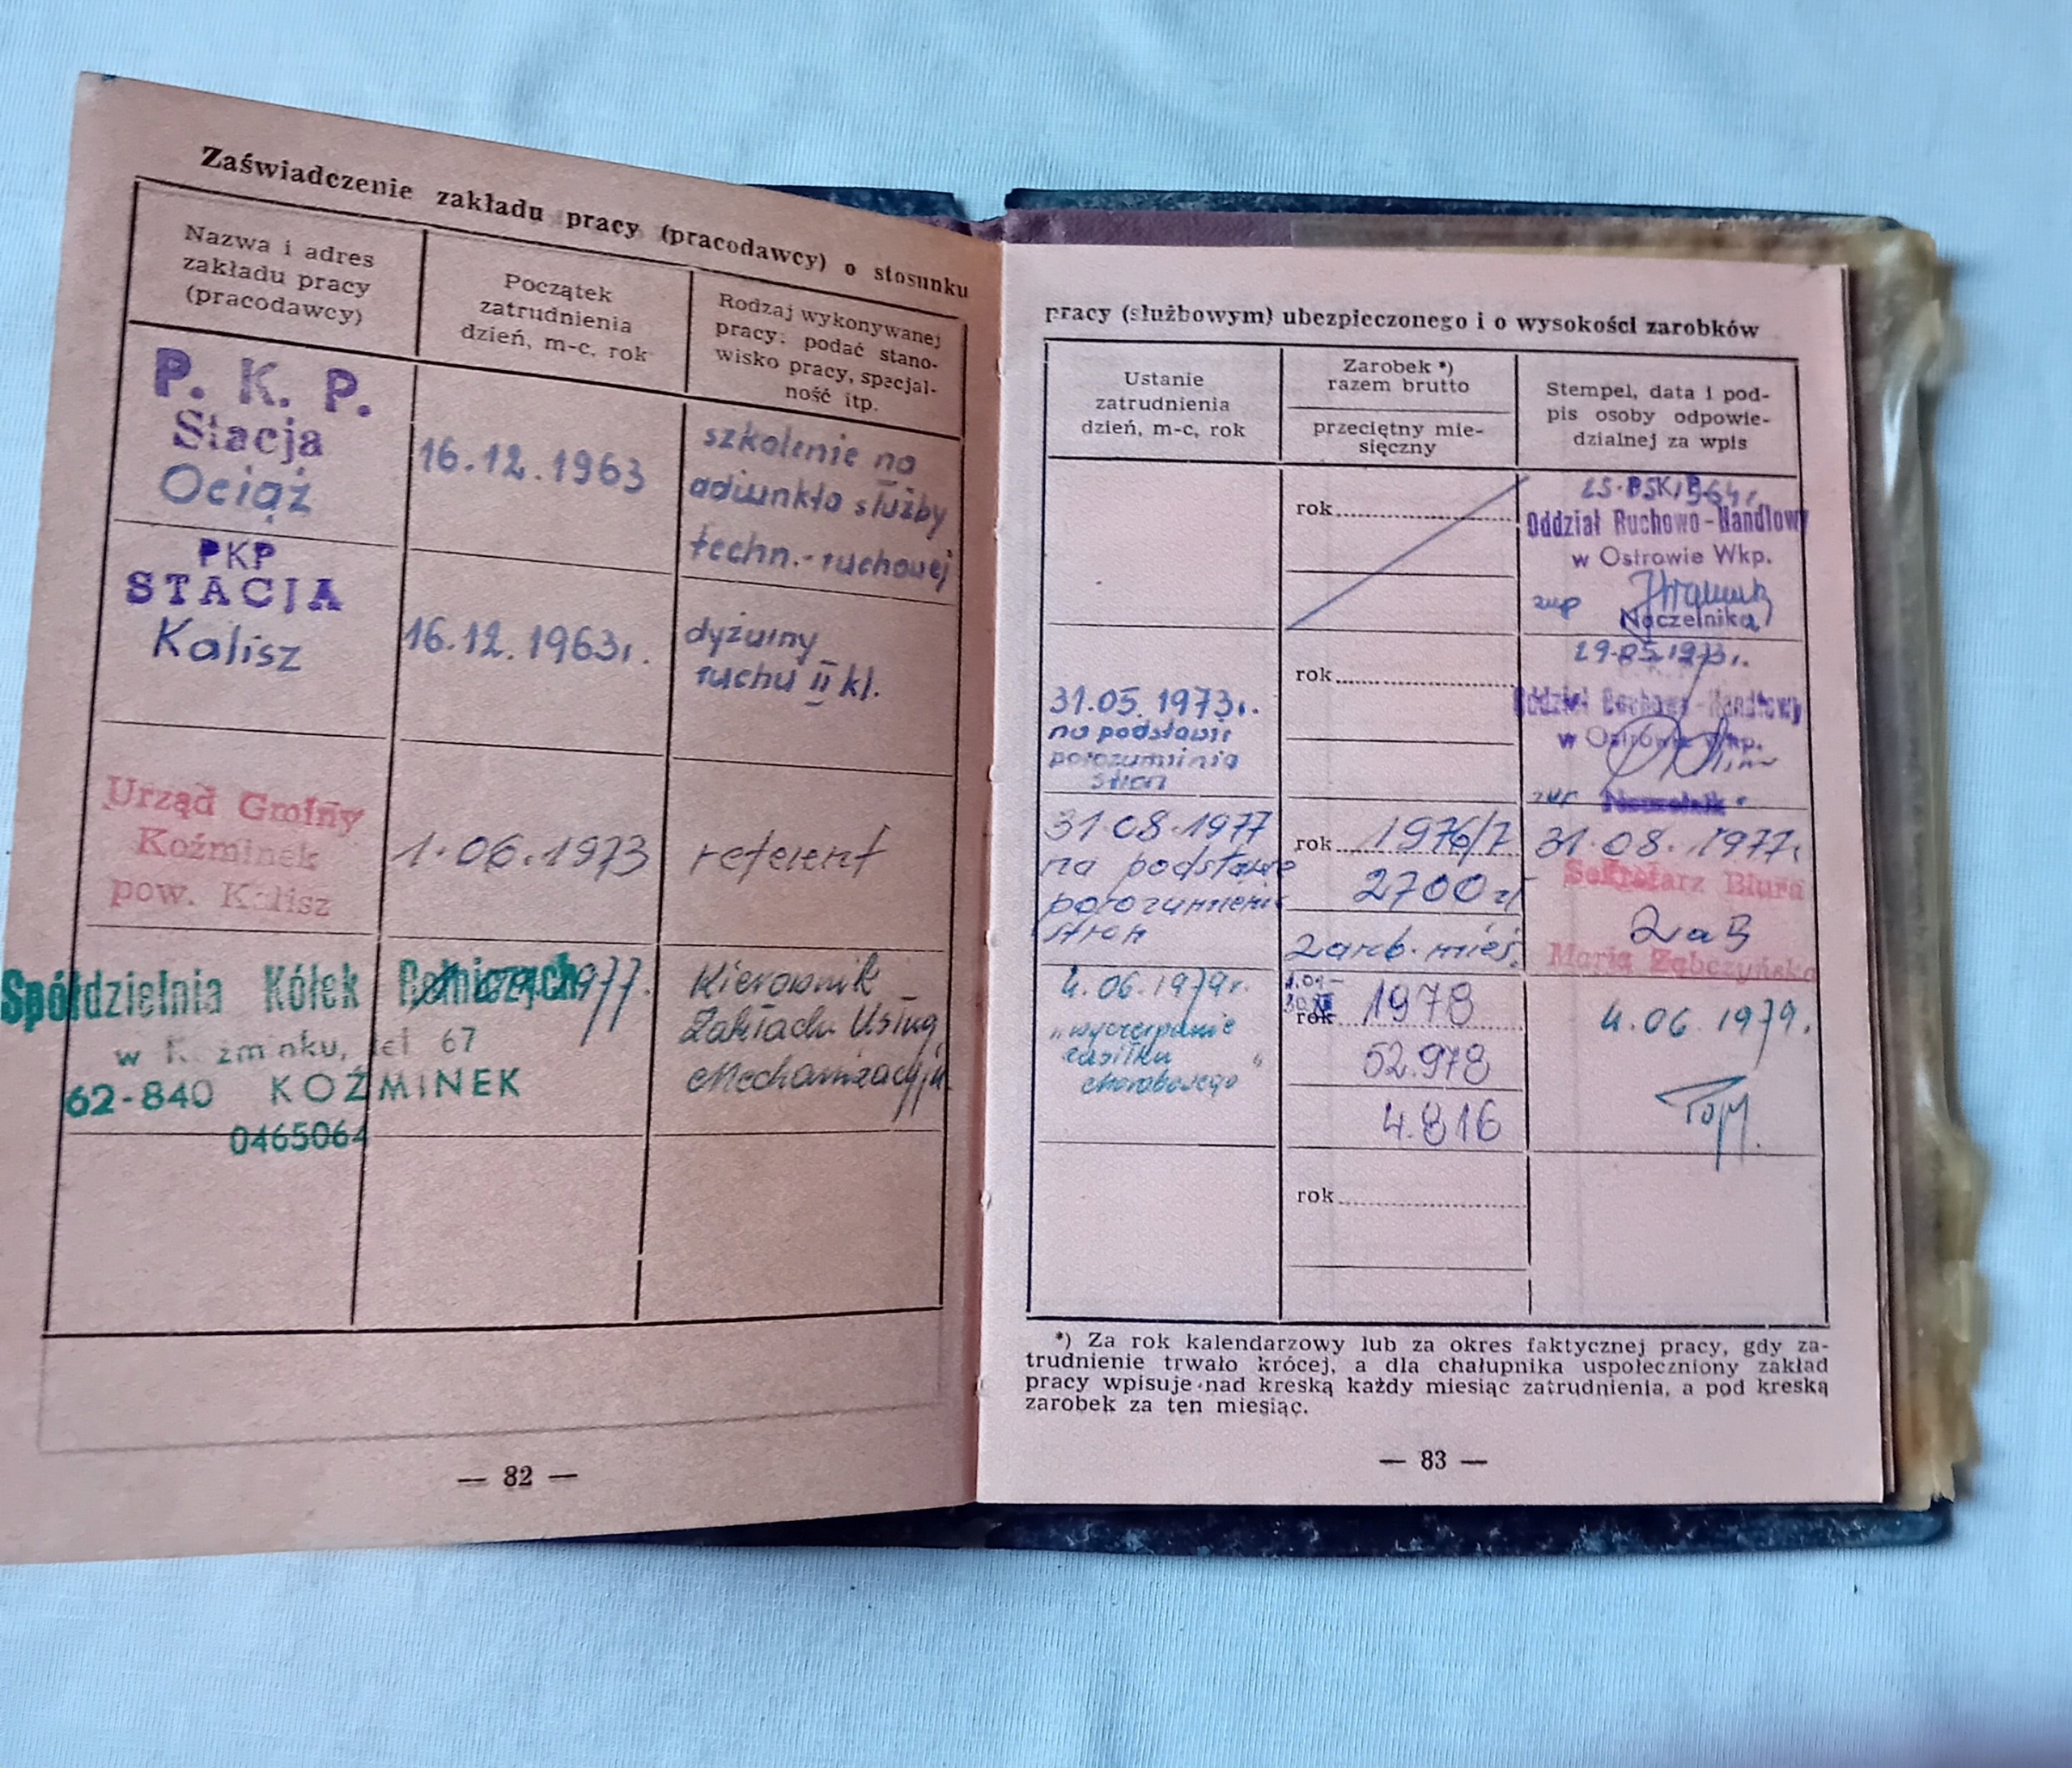 Zaświadczenie zakładu pracy (pracodawcy) o stosunku
Nazwa i adres
zakładu pracy
(pracodawcy)
Początek
zatrudnienia
dzień, m-c, rok
Rodzaj wykonywanej
pracy; podać stano-
wisko pracy, specjal-
ność itp.
P. K. P.
Stacja
Ociąż
16.12.1963
szkolenie na
adiunkta służby
techn.-ruchowej
PKP
STACJA
Kalisz
16.12.1963r.
dyżurny
ruchu II kl.
Urząd Gminy
Koźminek
pow. Kalisz
1.06.1973
referent
Spółdzielnia Kółek Rolniczych
w Koźminku, tel 67
62-840 KOŹMINEK
0465064
Kierownik
Zakładu Usług
Mechanizacyjn.
— 82 —
pracy (służbowym) ubezpieczonego i o wysokości zarobków
Ustanie
zatrudnienia
dzień, m-c, rok
Zarobek *)
razem brutto
przeciętny mie-
sięczny
Stempel, data i pod-
pis osoby odpowie-
dzialnej za wpis
rok
Oddział Ruchowo-Handlowy
w Ostrowie Wkp.
zup
Naczelnika
31.05.1973r.
na podstawie
porozumienia
stron
rok
29.05.1973r.
Oddział Ruchowo-Handlowy
w Ostrowie Wkp.
31.08.1977
na podstawie
porozumienia
stron
rok 1976/7
2700 zł
zarb. mieś.
31.08.1977r
Sekretarz Biura
ZaB
Maria Ząbczyńska
4.06.1979r.
"wyczerpanie
zasiłku
chorobowego"
rok 1978
52.978
4.816
4.06.1979.
rok
*) Za rok kalendarzowy lub za okres faktycznej pracy, gdy za-
trudnienie trwało krócej, a dla chałupnika uspołeczniony zakład
pracy wpisuje nad kreską każdy miesiąc zatrudnienia, a pod kreską
zarobek za ten miesiąc.
— 83 —